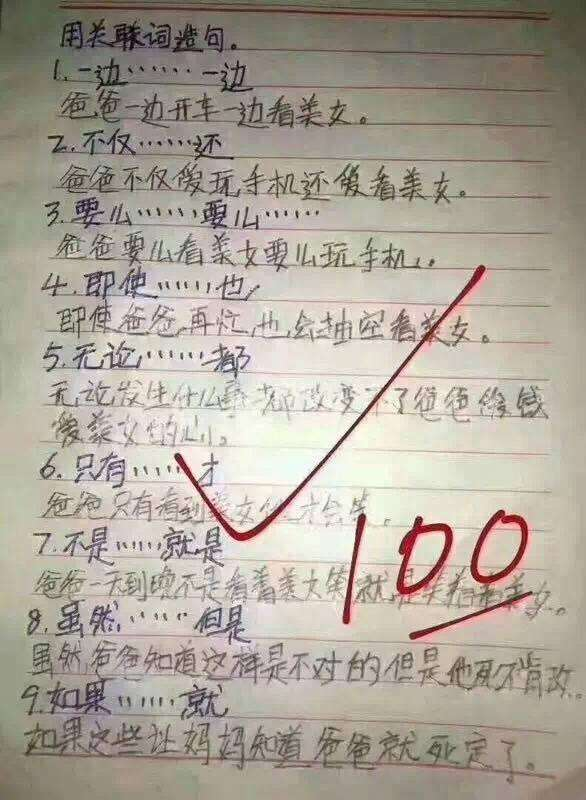 用关联词造句。
1.一边……一边
爸爸一边开车一边看美女。
2.不仅……还
爸爸不仅爱玩手机还爱看美女。
3.要么……要么……
爸爸要么看美女要么玩手机。
4.即使……也
即使爸爸再忙,也会抽空看美女。
5.无论……都
无论发生什么事都改变不了爸爸
爱美女的心。
6.只有……才
爸爸只有看到美女他才会笑。
7.不是……就是
爸爸一天到晚不是看着美女笑就是笑着看美女。
8.虽然……但是
虽然爸爸知道这样是不对的但是他死不肯改。
9.如果……就
如果这些让妈妈知道爸爸就死定了。
100